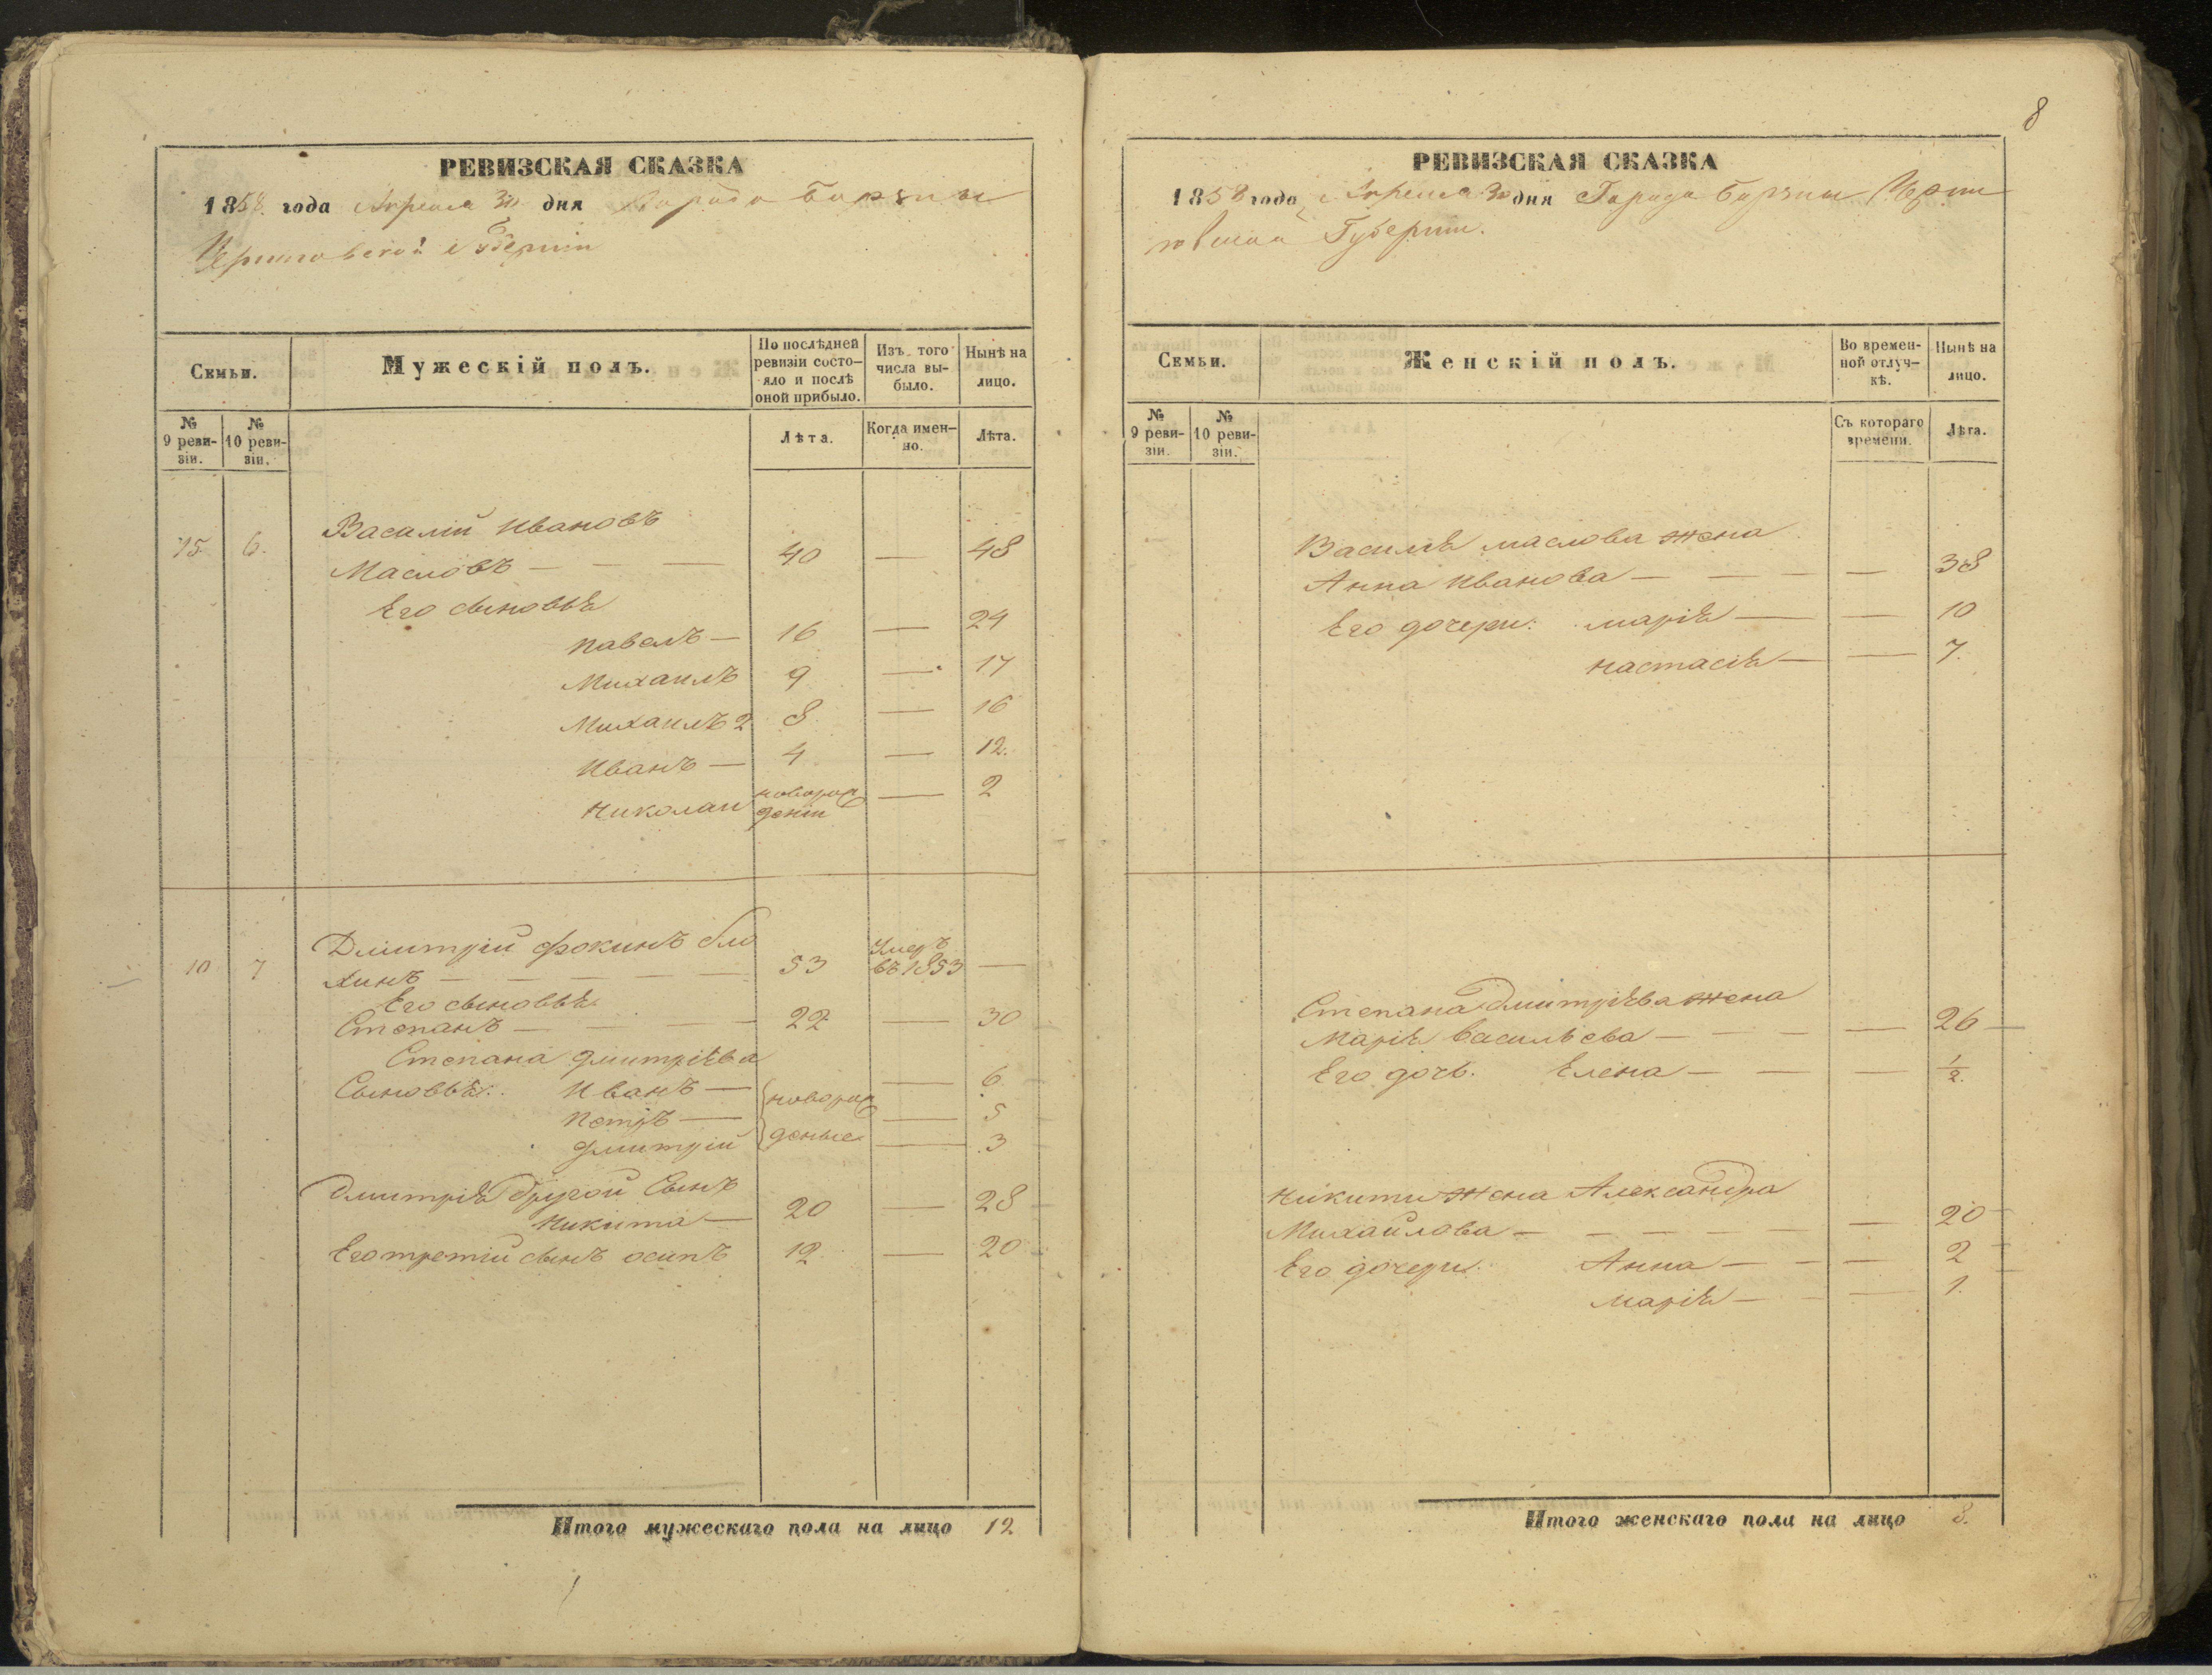 8
РЕВИЗСКАЯ СКАЗКА
1858 года Апреля 30 дня Города Борзны
Черниговской Губерніи
Семьи.
Мужескій полъ.
По послѣдней ревизіи состо-
яло и послѣ
оной прибыло.
Изъ того
числа вы-
было.
Нынѣ на
лицо.
№
9 реви-
зіи.
№
10 реви-
зіи.
Лѣта.
Когда имен-
но.
Лѣта.
Василій Ивановъ
15. 6. Масловъ — — — 40 — 48
Его сыновья
Павелъ — 16 — 24
Михаилъ 9 — 17
Михаилъ 2 8 — 16
Иванъ — 4 — 12.
Николай новорож
деній — 2
Дмитрій Фокинъ Бло
10 7 хинъ — — — — 53 Умеръ
въ 1853 —
Его сыновья
Степанъ — — — 22 — 30
Степана Дмитріева
Сыновья: Иванъ — новорож — 6
Петръ — — 5
Дмитрій деные — 3
Дмитрія другой Сынъ
Никита — 20 — 28
Его третій сынъ осипъ 12. — 20
Итого мужескаго пола на лицо 12
РЕВИЗСКАЯ СКАЗКА
1858 года Апреля 30 дня Города Борзны Черни
говской Губерніи.
Семьи.
Женскій полъ.
Во времен-
ной отлуч-
кѣ.
Нынѣ на
лицо.
№
9 реви-
зіи.
№
10 реви-
зіи.
Съ котораго
времени.
Лѣта.
Василія маслова жена
Анна Иванова — — — — 38
Его дочери: марія — — 10
настасія — — 7.
Степана Дмитріева жена
Марія Васильева — — — — 26 —
Его дочь. Елена — — — 1/2.
Никиты жена Александра
Михайлова — — — — — 20
Его дочери: Анна — — — 2
марія — — — 1.
Итого женскаго пола на лицо 8.